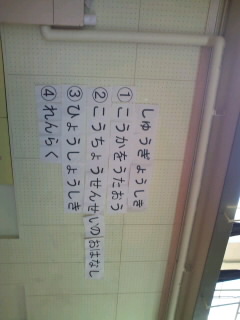 しゅうぎょうしき
①こうかをうたおう
②こうちょうせんせいのおはなし
③ひょうしょうしき
④れんらく